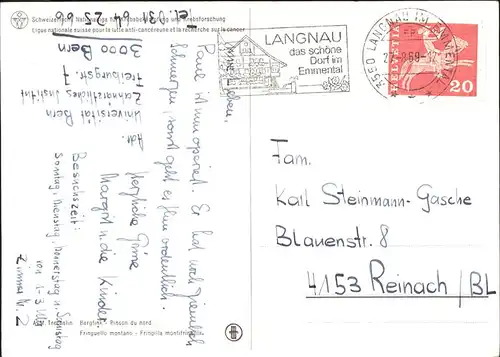 Schweizerische Nationalliga für Krebsbekämpfung und Krebsforschung
Ligue nationale suisse pour la lutte anti-cancéreuse et la recherche sur le cancer
Tel. 031 64 25 66
Meine Lieben,
Paul ist nun operiert. Er hat noch ziemlich
Schmerzen, sonst geht es ihm ordentlich.
Herzliche Grüsse
Margrit u. die Kinder
Adr.
Universität Bern
Zahnärztliches Institut
Freiburgstr. 7
3000 Bern
Besuchszeit:
Sonntag, Dienstag, Donnerstag u. Samstag
von 1-3 Uhr
Zimmer Nr. 2
Bergfink - Pinson du nord
Fringuello montano - Fringilla montifringilla
LANGNAU
das schöne
Dorf im
Emmental
3550 LANGNAU IM EMMENTAL
HELVETIA
20
Fam.
Karl Steinmann-Gasche
Blauenstr. 8
4153 Reinach/BL